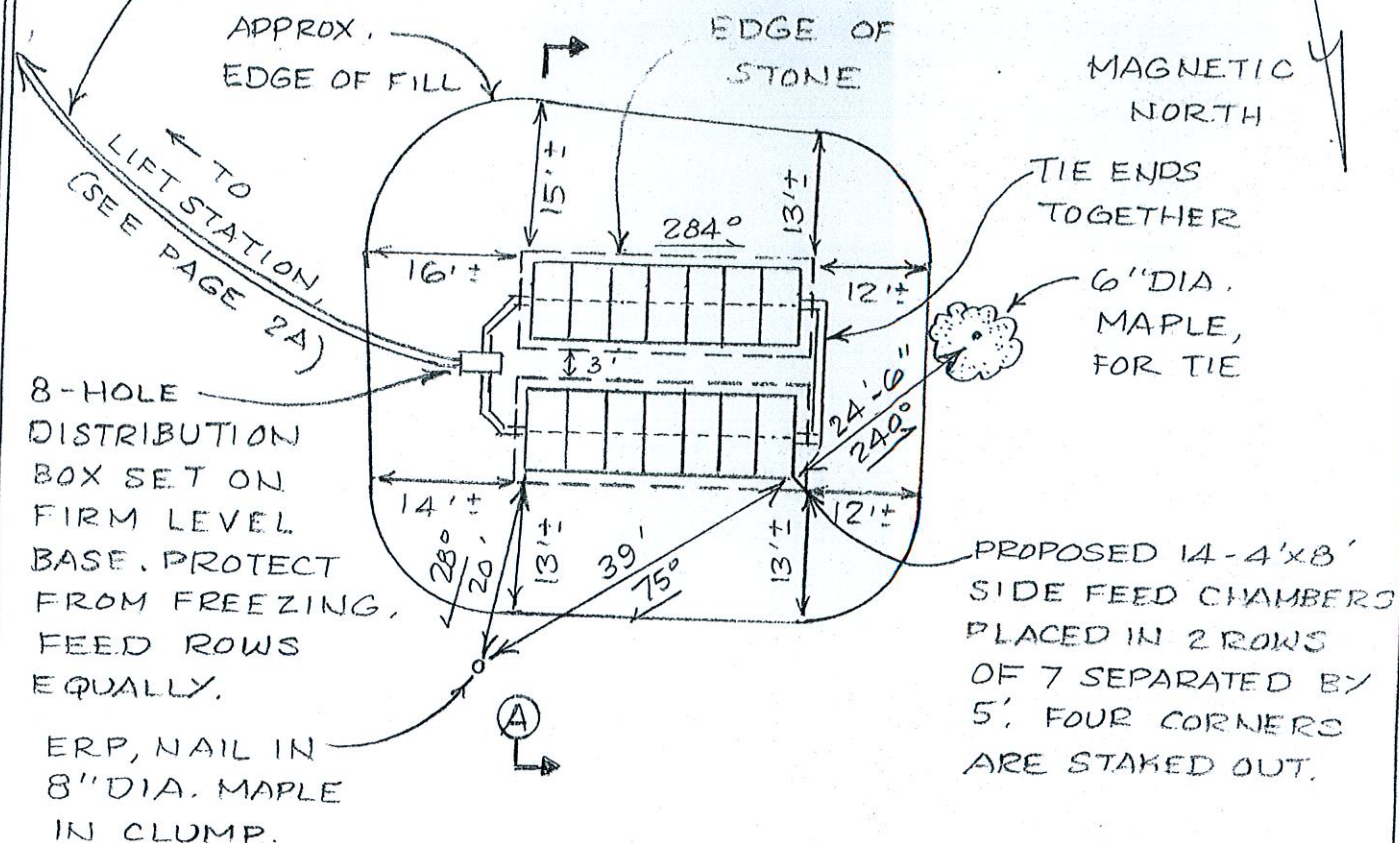 APPROX.
EDGE OF FILL
EDGE OF
STONE
MAGNETIC
NORTH
← TO
LIFT STATION,
(SEE PAGE 2A)
15'±
13'±
284°
16'±
12'±
TIE ENDS
TOGETHER
6"DIA.
MAPLE,
FOR TIE
3'
24'-6"
240°
8-HOLE
DISTRIBUTION
BOX SET ON
FIRM LEVEL
BASE. PROTECT
FROM FREEZING.
FEED ROWS
EQUALLY.
14'±
12'±
28°
20'
13'±
39'
75°
13'±
PROPOSED 14-4'x8'
SIDE FEED CHAMBERS
PLACED IN 2 ROWS
OF 7 SEPARATED BY
5'. FOUR CORNERS
ARE STAKED OUT.
A
ERP, NAIL IN
8"DIA. MAPLE
IN CLUMP.